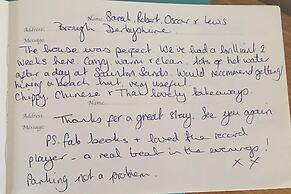 Name: Sarah, Robert, Oscar & Lewis
Address: Brough Derbyshire.
Message:
The house was perfect. We've had a brilliant 2
weeks here. Comfy, warm & clean. Lots of hot water
after a day at Saunton Sands. Would recommend getting/
hiring a beach hut, very useful.
Chippy, Chinese & Thai lovely takeaways.
Name:
Address: Thanks for a great stay. See you again
Message:
P.S. fab books & loved the record
player - a real treat in the evenings!
x x
Parking not a problem.